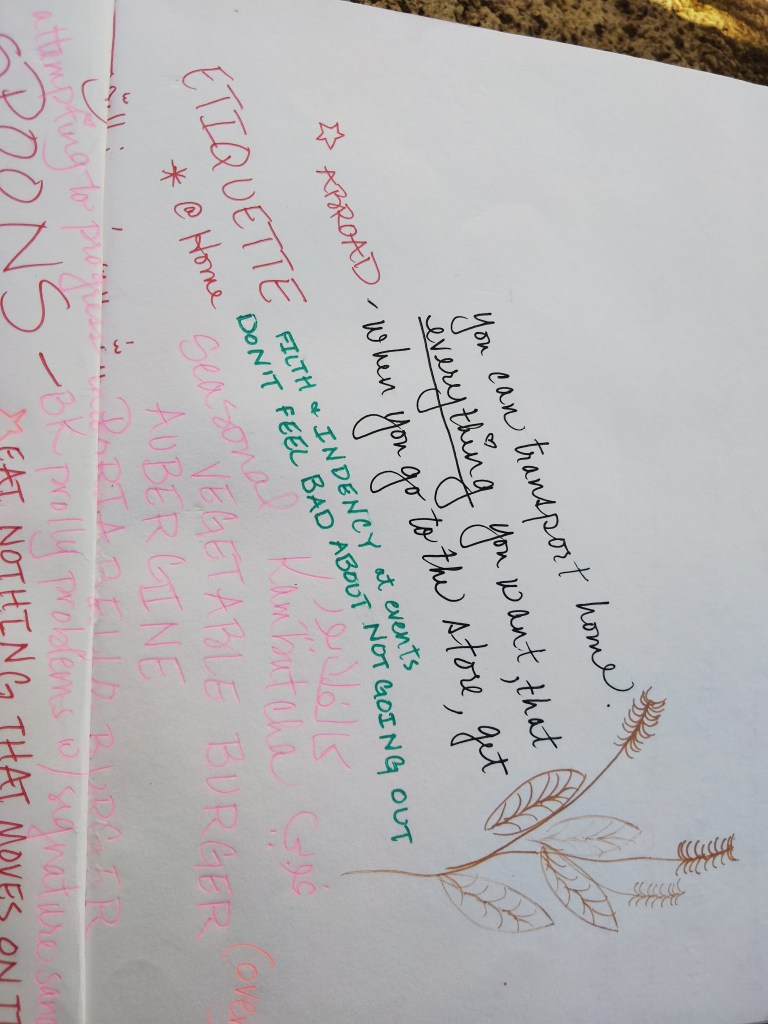 you can transport home.
everything you want, that
☆ ABROAD - When you go to the store, get
ETIQUETTE
FILTH & INDENCY at events
DON'T FEEL BAD ABOUT NOT GOING OUT
* @ Home
Seasonal Kambutcha
VEGETABLE BURGER (over
AUBERGINE
attempting to progress
SPOONS - BK prolly problems w/ signature
EAT NOTHING THAT MOVES ON IT